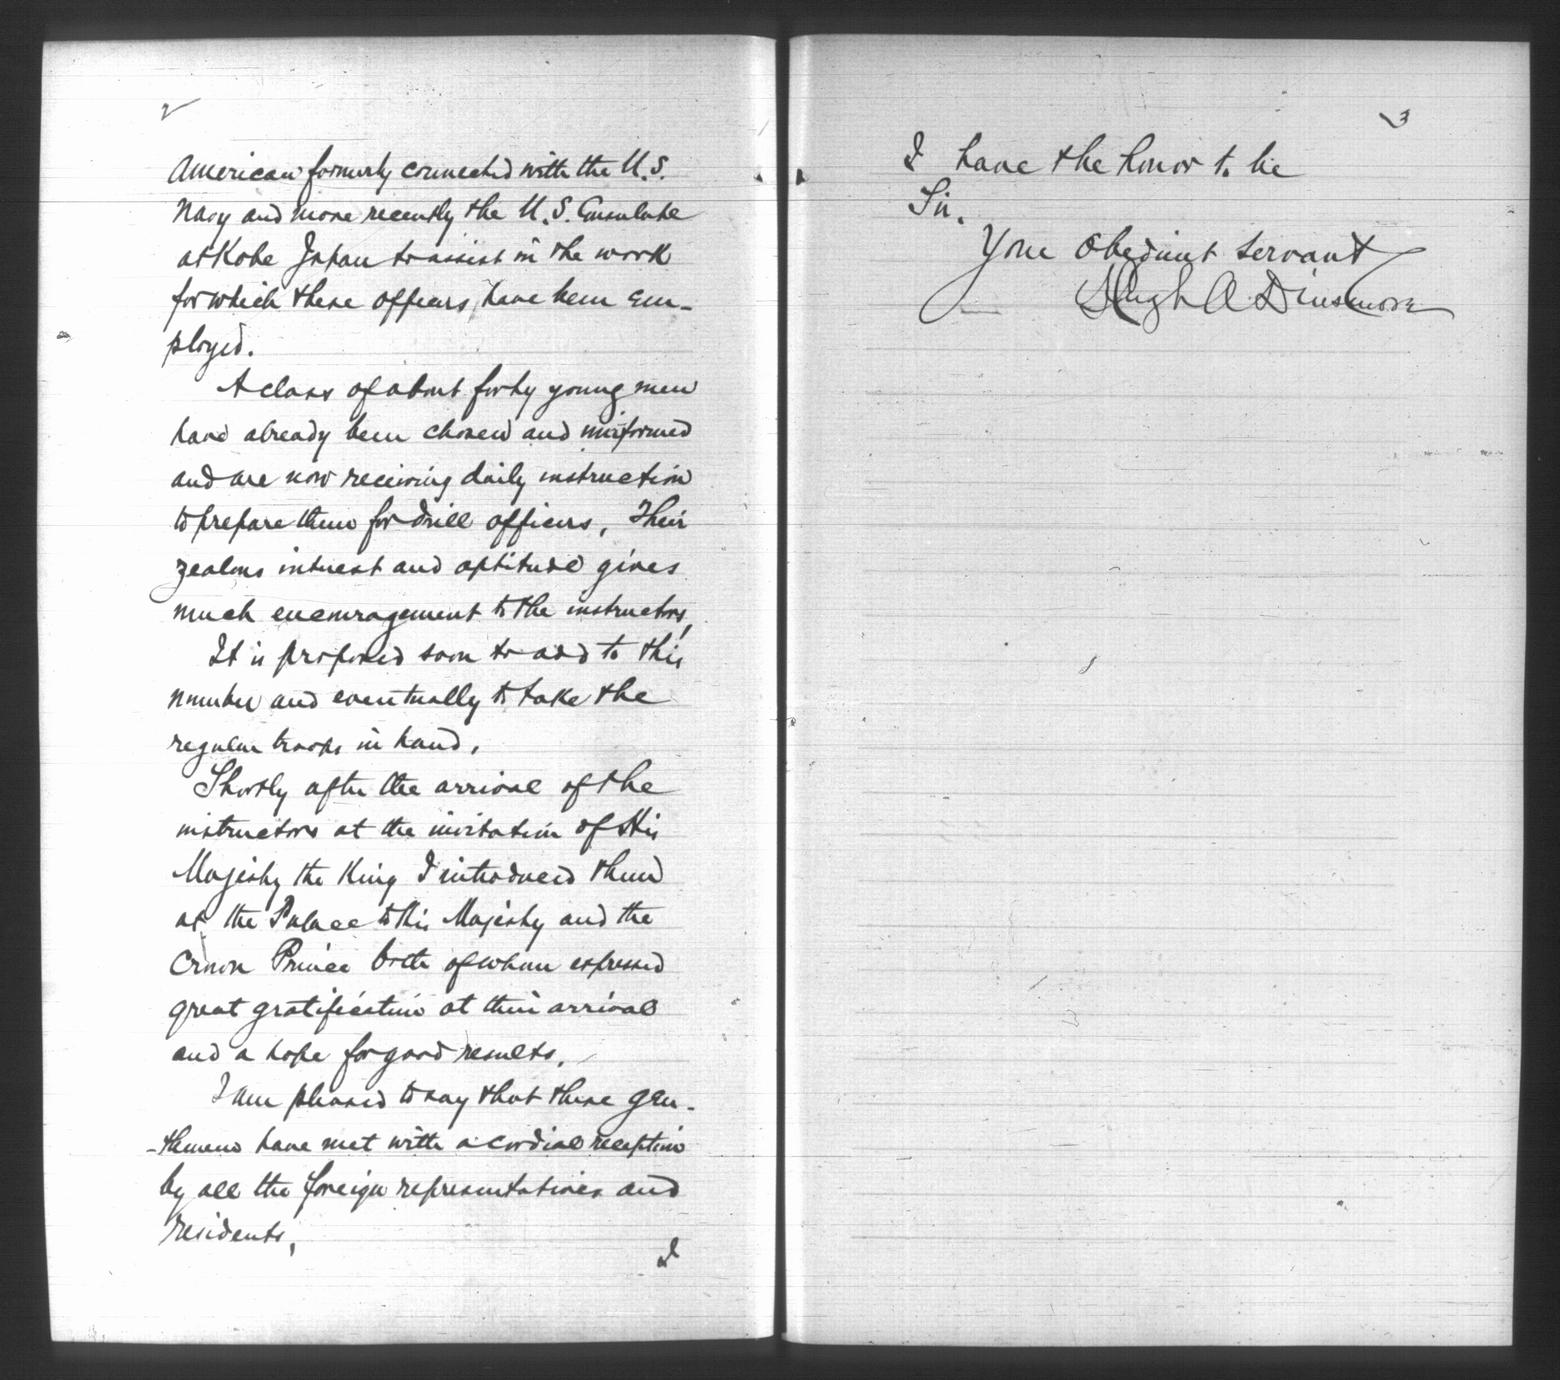 2
American formerly connected with the U.S.
Navy and more recently the U.S. Consulate
at Kobe Japan to assist in the work
for which these officers have been em-
ployed.
A class of about forty young men
have already been chosen and uniformed
and are now receiving daily instruction
to prepare them for drill officers. Their
zealous interest and aptitude gives
much encouragement to the instructors.
It is proposed soon to add to this
number and eventually to take the
regular troops in hand.
Shortly after the arrival of the
instructors at the invitation of His
Majesty the King I introduced them
at the Palace to His Majesty and the
Crown Prince both of whom expressed
great gratification at their arrival
and a hope for good results.
I am pleased to say that these gen-
-tlemen have met with a cordial reception
by all the foreign representatives and
residents.
I
3
I have the honor to be
Sir.
Your Obedient servant
Hugh A Dinsmore